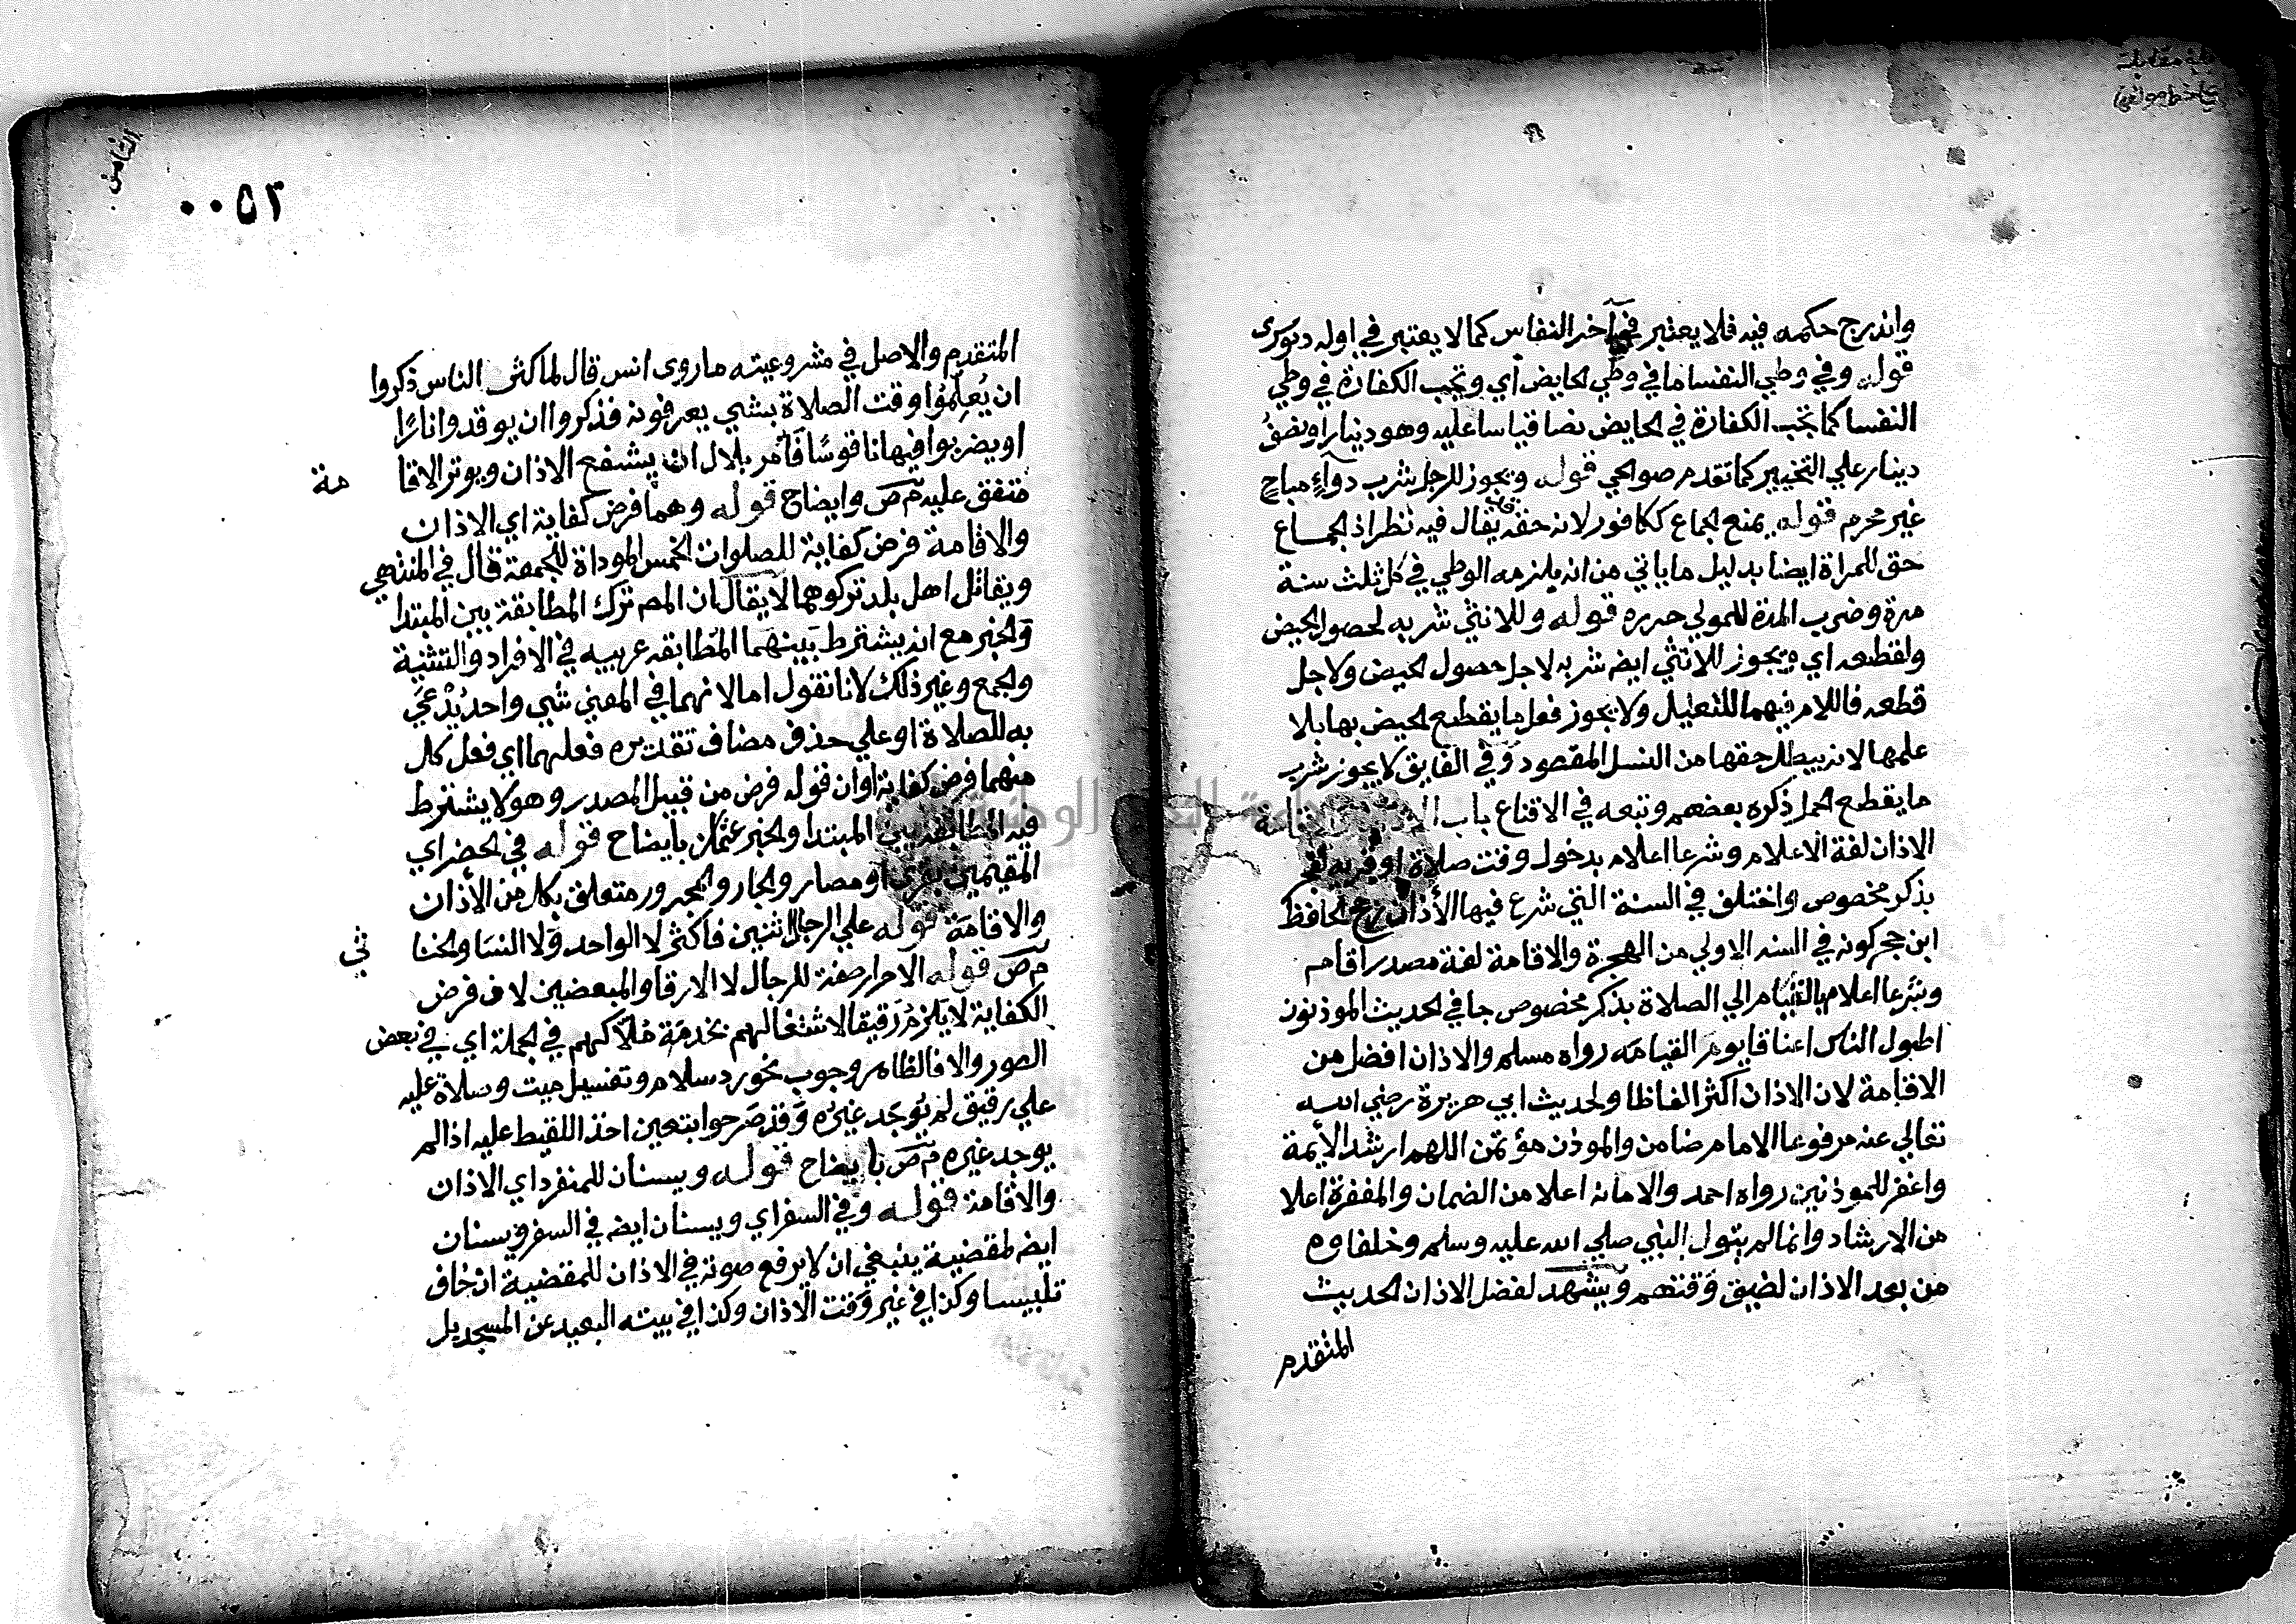 بلغ مقابلة
على خط مولفه
واندرج حكمه فيه فلا يعتبر في آخر النفاس كما لا يعتبر في اوله دنوشرى
قوله وفي وطي النفسا ما في وطي الحايض اي وتجب الكفارة في وطي
النفسا كما تجب الكفارة في الحايض نصا قياسا عليه وهو دينار او نصف
دينار علي التخيير كما تقدم صوالحي قوله ويجوز للرجل شرب دواءٍ مباحٍ
غير محرم قوله يمنع الجماع ككافور لانه حقه يقال فيه نظر اذ الجماع
حق للمراة ايضا بدليل ما ياتي من انه يلزمه الوطي في كل ثلث سنة
مرة وضرب المدة للمولي حرره قوله وللانثي شربه لحصول الحيض
ولقطعه اي ويجوز للانثي ايضا شربه لاجل حصول الحيض ولاجل
قطعه فاللام فيهما للتعليل ولا يجوز فعل ما يقطع الحيض بها بلا
علمها لانه يبطل حقها من النسل المقصود وفي الفايق لا يجوز شرب
ما يقطع الحمل ذكره بعضهم وتبعه في الاقناع باب
الاذان لغة الاعلام وشرعا اعلام بدخول وقت صلاة او قربه لفجر
بذكر مخصوص واختلف في السنة التي شرع فيها الأذان رجح الحافظ
ابن حجر كونه في السنه الاولي من الهجرة والاقامة لغة مصدر اقام
وشرعا اعلام بالقيام الي الصلاة بذكر مخصوص جا في الحديث الموذنون
اطول الناس اعناقا يوم القيامه رواه مسلم والاذان افضل من
الاقامة لان الاذان اكثر الفاظا ولحديث ابي هريرة رضي الله
تعالي عنه مرفوعا الامام ضامن والموذن مؤتمن اللهم ارشد الأيمة
واغفر للموذنين رواه احمد والامانه اعلا من الضمان والمغفرة اعلا
من الارشاد وانما لم يتول النبي صلي الله عليه وسلم وخلفاوه
من بعد الاذان لضيق وقتهم ويشهد لفضل الاذان الحديث
المتقدم
الثامن
٠٠٥٣
المتقدم والاصل في مشروعيته ما روى انس قال لما كثر الناس ذكروا
ان يُعلِّمُوا وقت الصلاة بشي يعرفونه فذكروا ان يوقدوا نارًا
او يضربوا فيها ناقوسًا فأُمر بلال ان يشفع الاذان ويوتر الاقامة
متفق عليه م ص وايضاح قوله وهما فرض كفاية اي الاذان
والاقامة فرض كفاية للصلوات الخمس الموداة للجمعة قال في المنتهي
ويقاتل اهل بلد تركوهما لا يقال ان المص ترك المطابقة بين المبتدا
والخبر مع انه يشترط بينهما المطابقه عربيه في الافراد والتثنية
والجمع وغير ذلك لانا نقول اما لانهما في المعني شي واحد يُدْعَي
به للصلاة او علي حذف مضاف تقديره فعلهما اي فعل كل
منهما فرض كفاية او ان قوله فرض من قبيل المصدر وهو لا يشترط
فيه المطابقة بين المبتدا والخبر عثمان بايضاح قوله في الحضر اي
المقيمين بقرى او مصار والجار والمجرور متعلق بكل من الأذان
والاقامة قوله علي الرجال اثنين فاكثر لا الواحد ولا النسا والخناثي
م ص قوله الاحرار صفة للرجال لا الارقا والمبعضين لان فرض
الكفاية لا يلزم رقيقا لاشتغالهم بخدمة ملاكهم في الجملة اي في بعض
الصور والا فالظاهر وجوب نحو رد سلام وتغسيل ميت وصلاة عليه
علي رقيق لم يوجد غيره وقد صرحوا بتعين اخذ اللقيط عليه اذا لم
يوجد غيره م ص بايضاح قوله ويسنان للمنفرد اي الاذان
والاقامة قوله وفي السفر اي ويسنان ايض في السفر ويسنان
ايض لمقضية ينبغي ان لا يرفع صوته في الاذان للمقضية ان خاف
تلبيسا وكذا في غير وقت الاذان وكذا في بيته البعيد عن المسجد بل